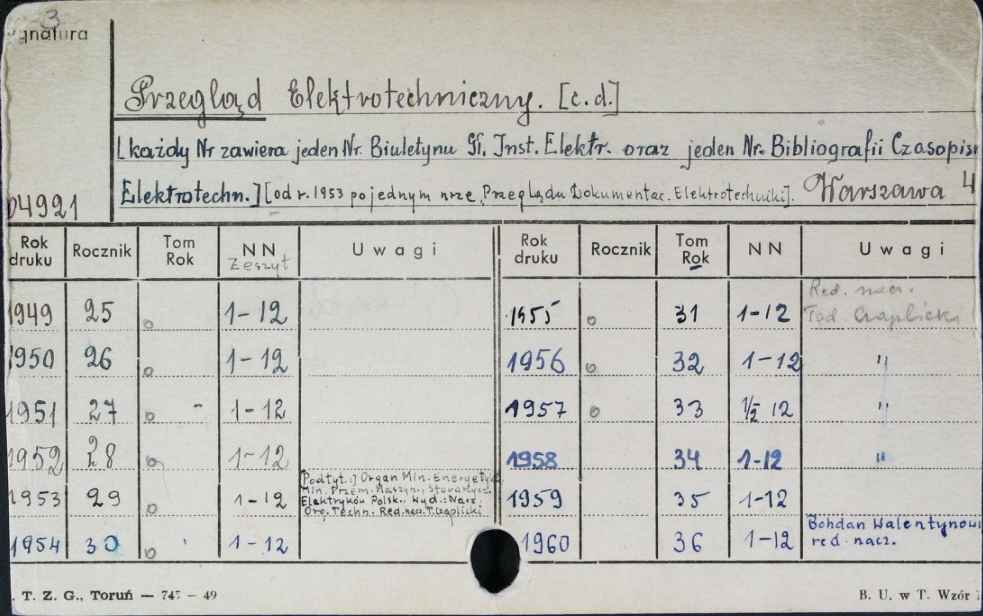 3
ygnatura
Przegląd Elektrotechniczny. [c.d.]
[każdy Nr zawiera jeden Nr. Biuletynu Gł. Inst. Elektr. oraz jeden Nr. Bibliografii Czasopism
Elektrotechn.] [od r. 1953 po jednym nrze „Przeglądu Dokumentac. Elektrotechniki]. Warszawa 4
04921
Rok druku Rocznik Tom Rok NN Zeszyt Uwagi Rok druku Rocznik Tom Rok NN Uwagi
1949 25 o 1-12 1955 o 31 1-12 Red. nacz. Tad. Czaplicki
1950 26 o 1-12 1956 o 32 1-12 "
1951 27 o - 1-12 1957 o 33 1/2 12 "
1952 28 o 1-12 1958 34 1-12 "
1953 29 o 1-12 Podtyt.: Organ Min. Energetyki 1959 35 1-12
Min. Przem. Maszyn., Stowarzysz.
Elektryków Polsk. Wyd.: Nacz.
Org. Techn. Red. nacz. T. Czaplicki
1954 30 o 1-12 1960 36 1-12 Bohdan Walentynowi
red. nacz.
. T. Z. G., Toruń — 747 — 49 B. U. w T. Wzór